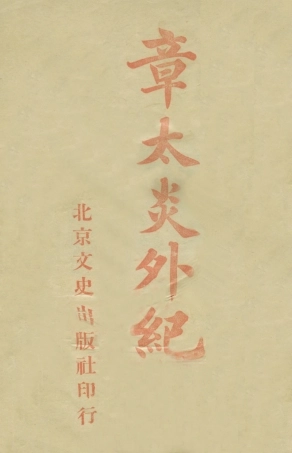 章太炎外紀
北京文史出版社印行